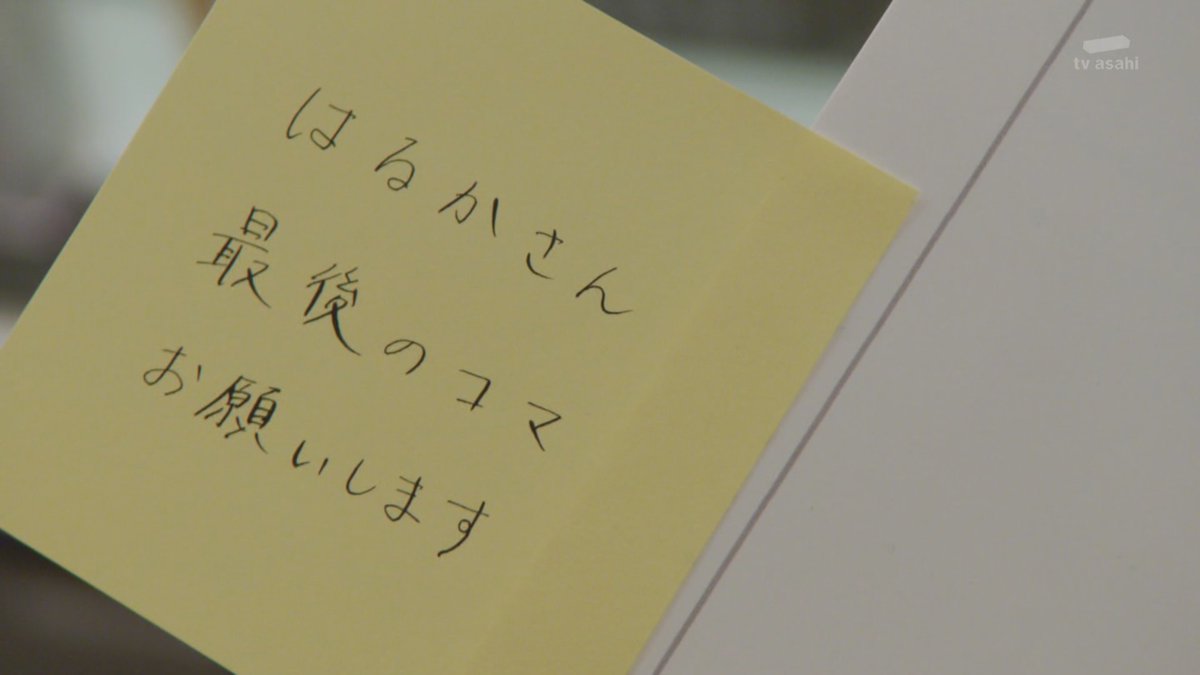 はるかさん
最後のコマ
お願いします
tv asahi